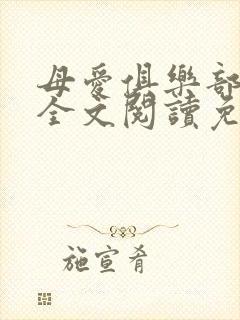 母愛俱樂部
全文閱讀免
施宣肴